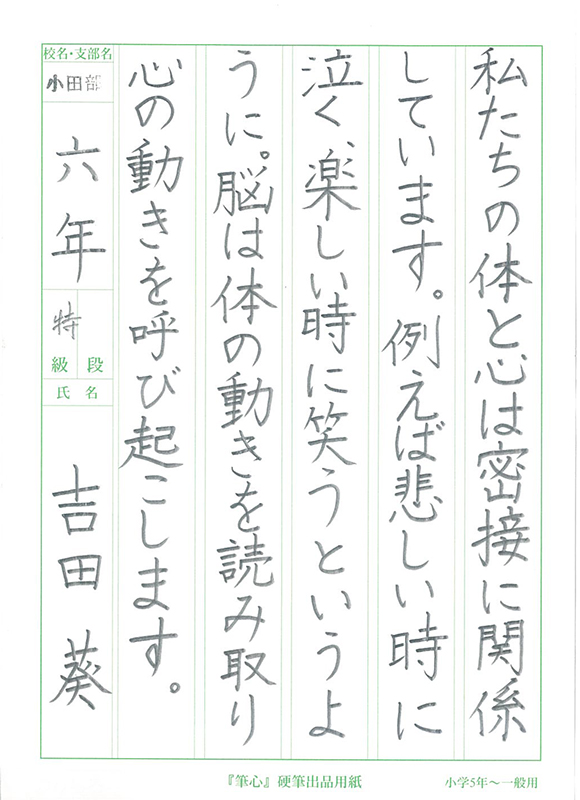 私たちの体と心は密接に関係
しています。例えば悲しい時に
泣く、楽しい時に笑うというよ
うに。脳は体の動きを読み取り
心の動きを呼び起こします。
校名・支部名
小田部
六年
特
級 段
氏 名
吉田 葵
『筆心』硬筆出品用紙
小学5年~一般用